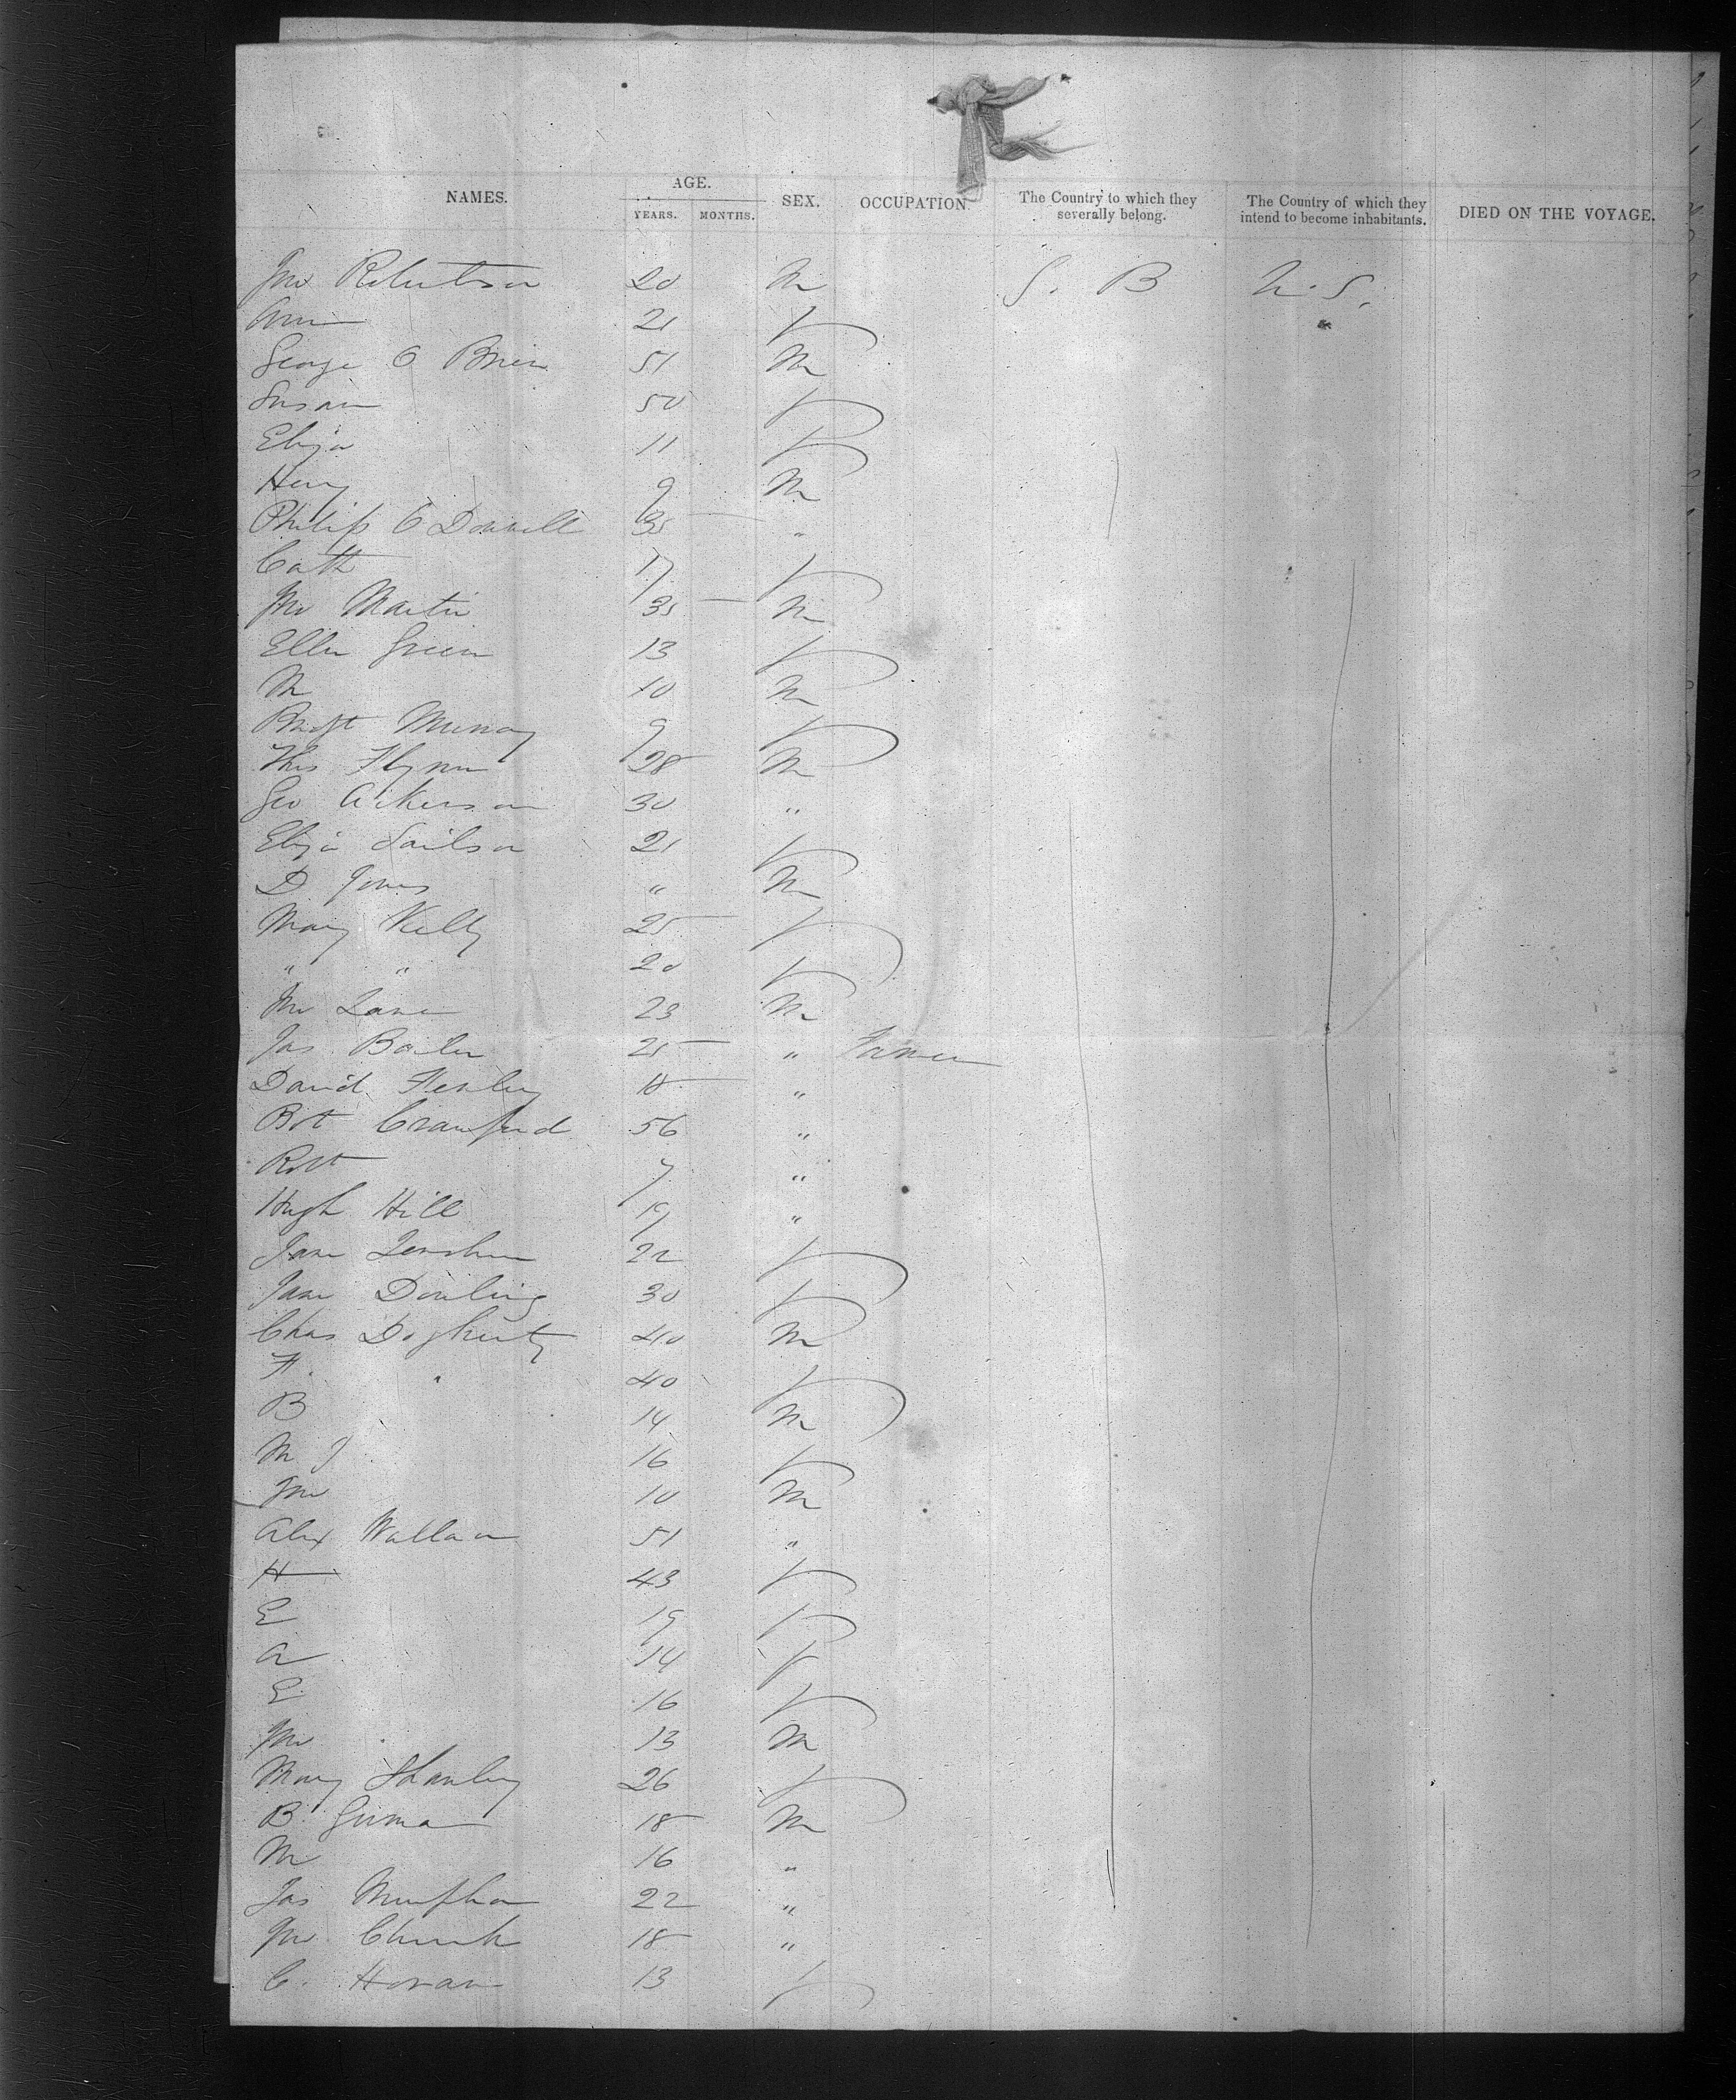 NAMES. AGE. SEX. OCCUPATION. The Country to which they severally belong. The Country of which they intend to become inhabitants. DIED ON THE VOYAGE.
YEARS. MONTHS.
Jno Robertson 20 M G. B U.S.
Ann 21 F
George O Brien 51 M
Susan 50 F
Eliza 11 F
Henry 9 M
Philip O Donnell 35 "
Cath 17 F
Jno Martin 35 M
Ellen Green 13 F
M 10 M
Bridgt Murray 9 F
Thos Flynn 28 M
Geo Ackerson 30 "
Eliza 21 F
D Jones " M
Mary Kelly 25 F
" " 20 F
Jno Lane 23 M
Jas 25 " Farmer
David "
Robt Crawford 56 "
Robt 7 "
Hugh Hill 19 "
Jane 22 F
Jane Dowling 30 F
Chas Dogherty 40 M
F. " 40 F
B 14 M
M J 16 F
Jno 10 M
Alex Wallace 51 "
H 43 F
E 19 F
A 14 F
E 16 F
Jno 13 M
Mary Shanley 26 F
B 18 M
M 16 "
Jas 22 "
Jno Church 18 "
C. Horan 13 F